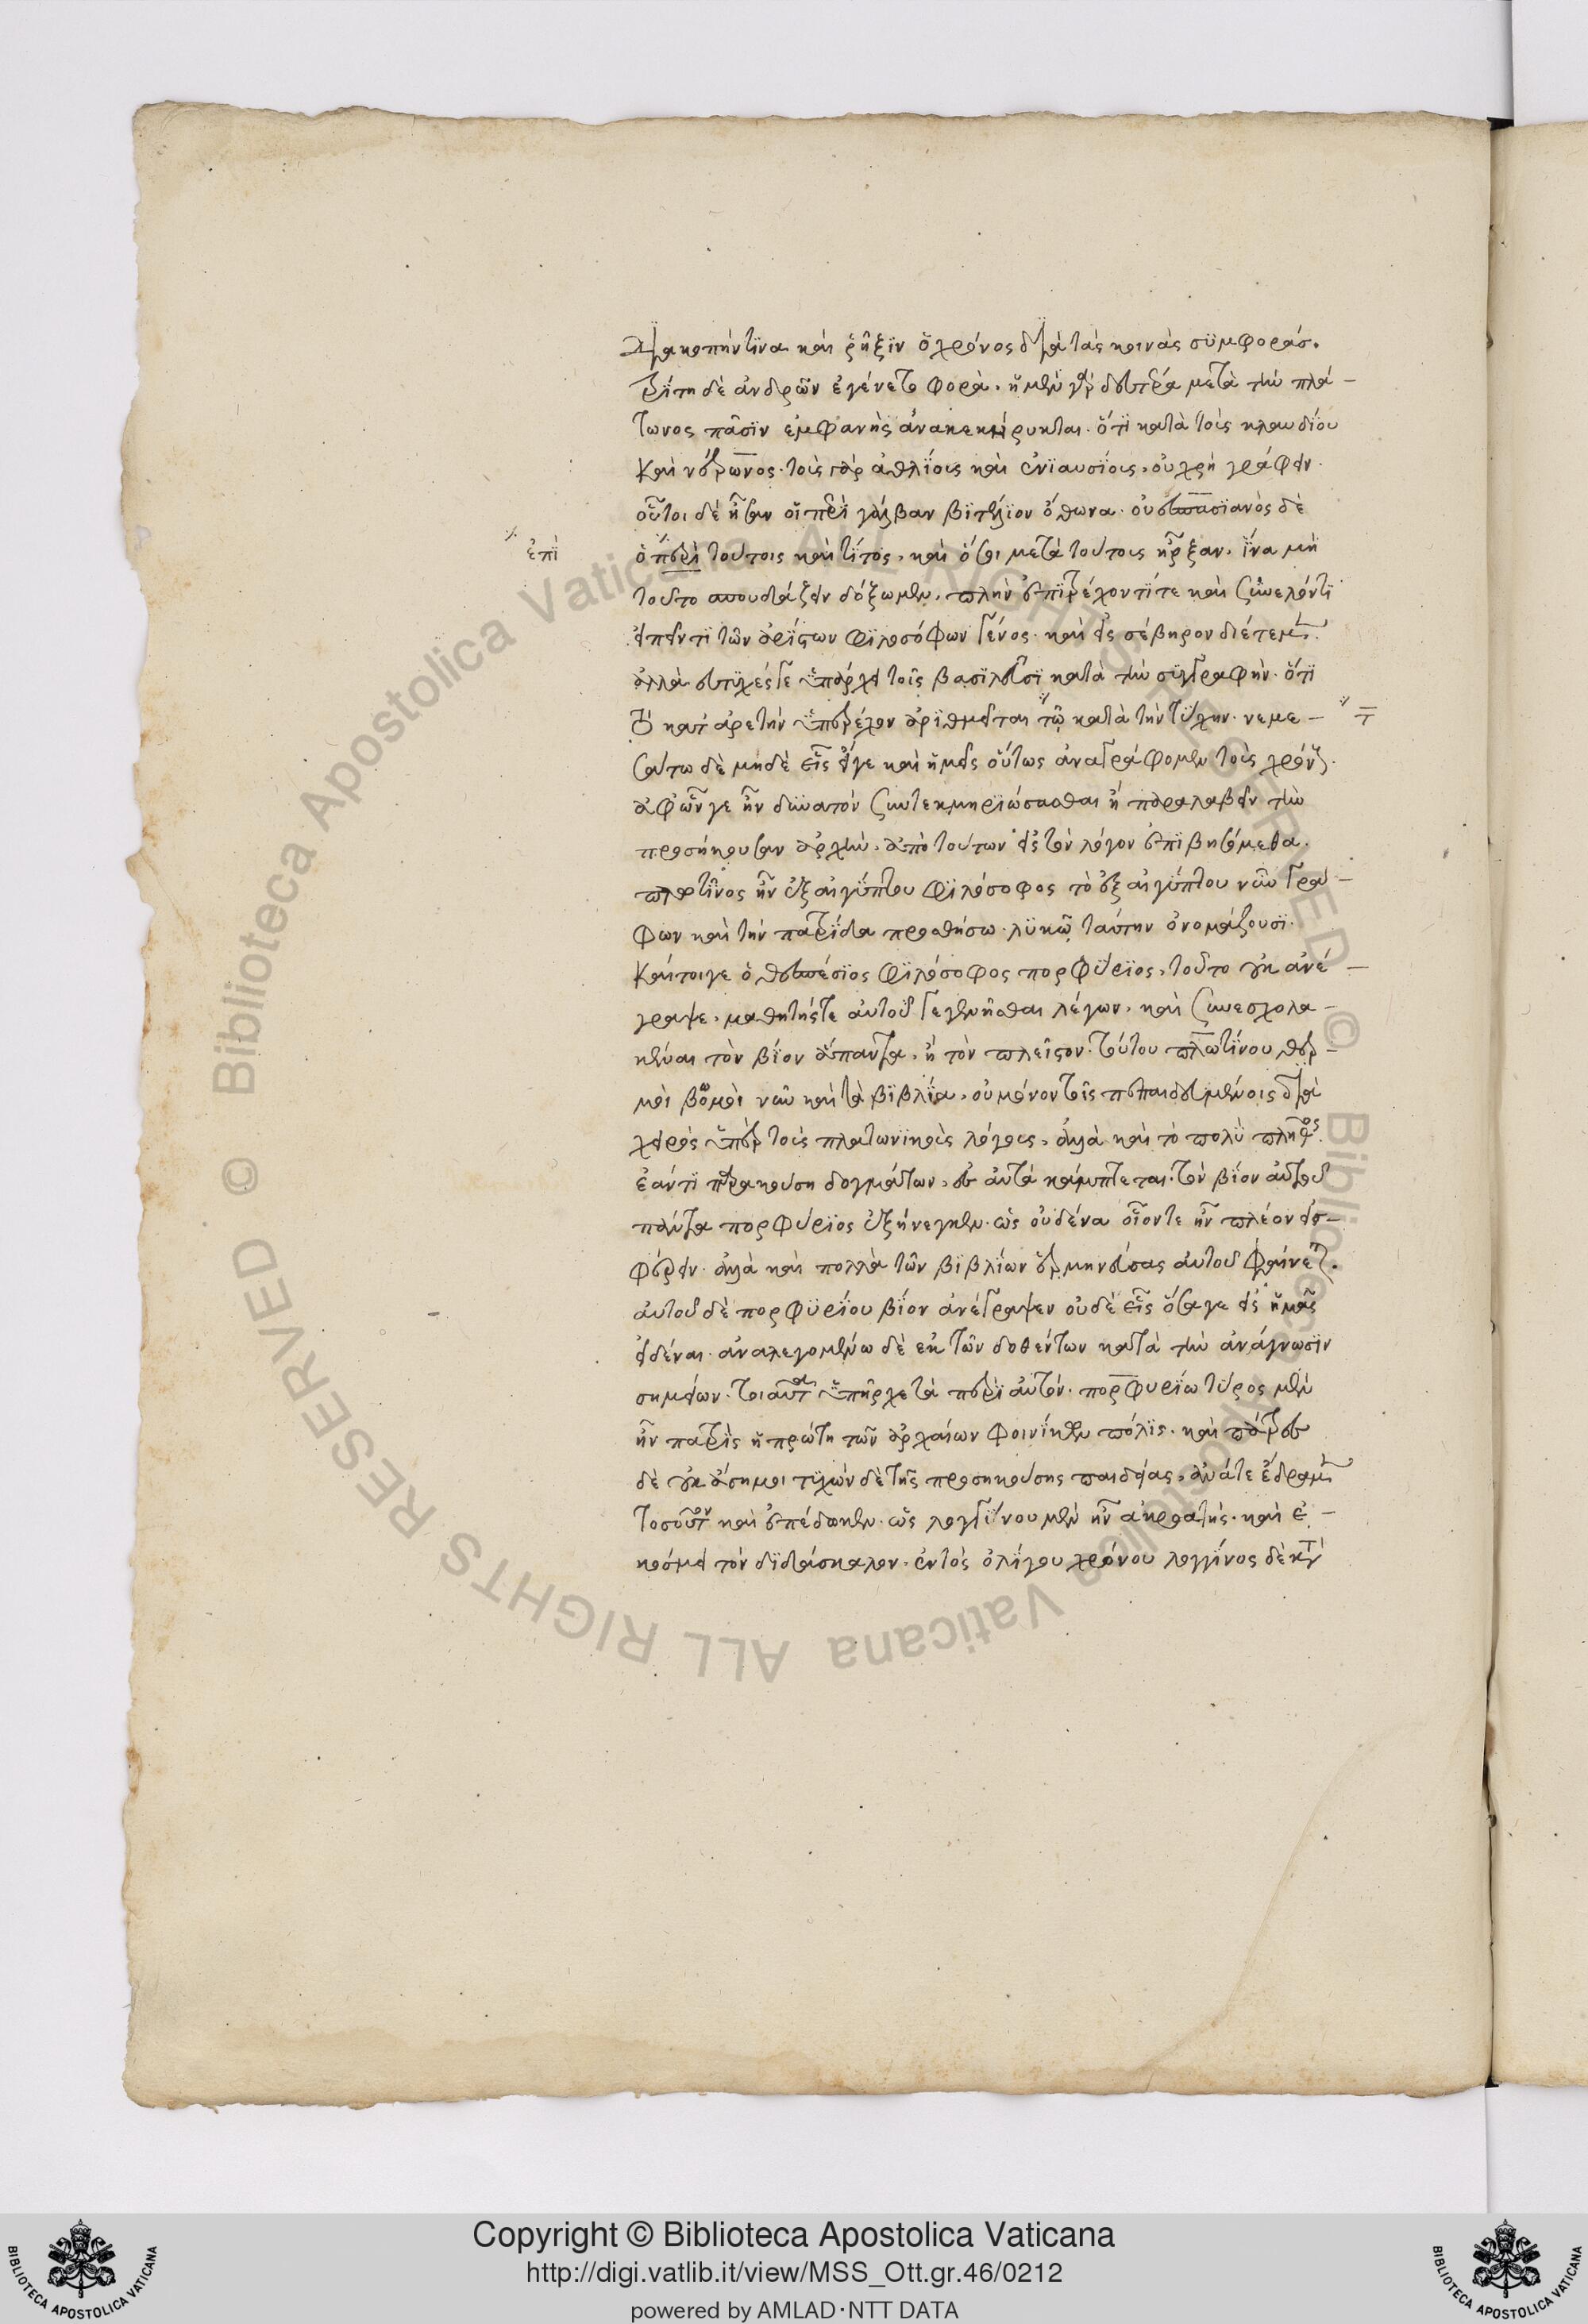 διακοπήν τινα καὶ ῥῆξϊν ὁ χρόνος διὰ τὰς κοινὰς σϋμφοράς.
τρίτη δὲ ἀνδρῶν ἐγένετο φορὰ. ἡ μὲν γὰρ δευτέρα μετὰ τὴν πλά-
τωνος πᾶσϊν ἐμφανὴς ἀνακεκήρυκται. ὅτι κατὰ τοὺς κλαυδίου
καὶ νέρωνος. τοὺς γὰρ ἀθλΐους καὶ ἐνϊαυσΐους, οὐ χρὴ γράφειν.
οὗτοι δὲ ἦσαν οἱ περὶ γάλβαν βϊτέλϊον ὄθωνα. οὐεσπασϊανὸς δὲ
ἐπὶ
ὁ περὶ τούτοις καὶ τίτος, καὶ ὅσοι μετὰ τούτους ἦρξαν, ἵνα μὴ
τοῦτο σπουδάζειν δόξωμεν, πλὴν ἐπϊτρέχοντί τε καὶ συνελόντι
εἰπεῖν τὸ τῶν ἀρίστων φϊλοσόφων γένος. καὶ εἰς σέβηρον διέτεινεν.
ἀλλὰ εὐτϋχές γε ὑπάρχει τοῖς βασϊλεῦσϊ κατὰ τὴν σϋγγραφὴν. ὅτι
τὸ κατ' ἀρετὴν ὑπερέχον ἀρϊθμεῖται τῷ κατὰ τὴν τύχην. νεμε-
τ
σάτω δὲ μηδὲ εἷς εἴγε καὶ ἡμεῖς οὕτως ἀναγράφομεν τοὺς χρόνους.
ἀφ' ὧν γε ἦν δυνατὸν συντεκμηρϊώσασθαι ἢ παραλαβεῖν τὴν
προσήκουσαν ἀρχὴν. ἀπὸ τούτων εἰς τὸν λόγον ἐπϊβησόμεθα.
πλωτῖνος ἦν ἐξ αἰγύπτου φϊλόσοφος τὸ ἐξ αἰγύπτου νῦν γρά-
φων καὶ τὴν πατρίδα προσθήσω. λϋκὼ ταύτην ὀνομάζουσϊ.
καίτοιγε ὁ θεσπέσϊος φϊλόσοφος πορφύρϊος, τοῦτο οὐκ ἀνέ-
γραψε. μαθητής τε αὐτοῦ γεγενῆσθαι λέγων, καὶ συνεσχολα-
κέναι τὸν βΐον ἅπαντα. ἢ τὸν πλεῖστον. τούτου πλωτΐνου θερ-
μοὶ βωμοὶ νῦν καὶ τὰ βϊβλΐα, οὐ μόνον τοῖς πεπαιδευμένοις διὰ
χειρὸς ὑπὲρ τοὺς πλατωνϊκοὺς λόγους. ἀλλὰ καὶ τὸ πολὺ πλῆθος.
ἐάν τι παρακούση δογμάτων, ἐς αὐτὰ κάμπτεται. τὸν βΐον αὐτοῦ
πάντα πορφύρϊος ἐξήνεγκεν. ὡς οὐδένα οἷόν τε ἦν πλέον εἰσ-
φέρειν. ἀλλὰ καὶ πολλὰ τῶν βϊβλΐων ἑρμηνεύσας αὐτοῦ φαίνεται.
αὐτοῦ δὲ πορφϋρΐου βΐον ἀνέγραψεν οὐδὲ εἷς ὅσα γε εἰς ἡμᾶς
εἰδέναι. ἀναλεγομένω δὲ ἐκ τῶν δοθέντων κατὰ τὴν ἀνάγνωσϊν
σημείων. τοιαῦτα ὑπῆρχε τὰ περὶ αὐτόν. πορφυρίω τύρος μὲν
ἦν πατρὶς ἡ πρώτη τῶν ἀρχαίων φοινΐκων πόλϊς. καὶ πατέρες
δὲ οὐκ ἄσημοι τϋχὼν δὲ τῆς προσηκούσης παιδείας, ἀνά τε ἔδραμεν
τοσοῦτον καὶ ἐπέδωκεν. ὡς λογγΐνου μὲν ἦν ἀκροατὴς. καὶ ἐ-
κόσμει τὸν δϊδάσκαλον. ἐντὸς ὀλΐγου χρόνου λογγίνος δὲ κατὰ
Copyright © Biblioteca Apostolica Vaticana
http://digi.vatlib.it/view/MSS_Ott.gr.46/0212
powered by AMLAD·NTT DATA
BIBLIOTECA APOSTOLICA VATICANA
BIBLIOTECA APOSTOLICA VATICANA
© Biblioteca Apostolica Vaticana ALL RIGHTS RESERVED
© Biblioteca Apostolica Vaticana ALL RIGHTS RESERVED